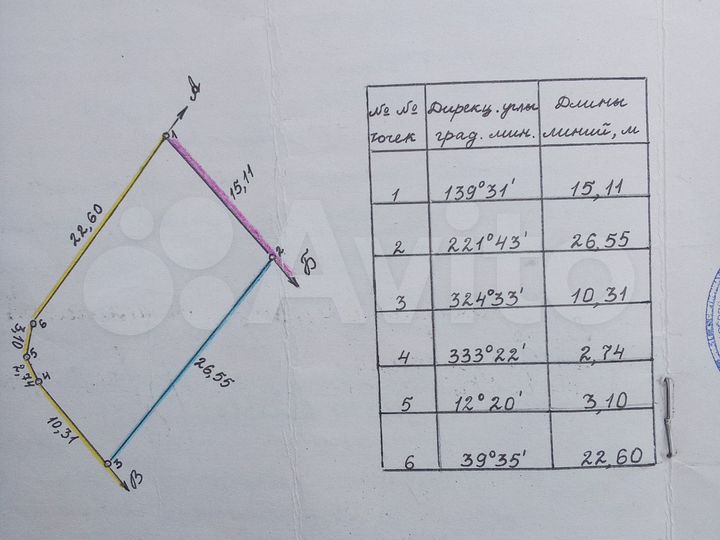 А
1
22,60
15,11
2
Б
6
3,10
5
2,74
4
10,31
3
В
26,55
№ № точек
Дирекц. углы град. мин.
Длины линий, м
1 139°31' 15,11
2 221°43' 26,55
3 324°33' 10,31
4 333°22' 2,74
5 12°20' 3,10
6 39°35' 22,60
Avito